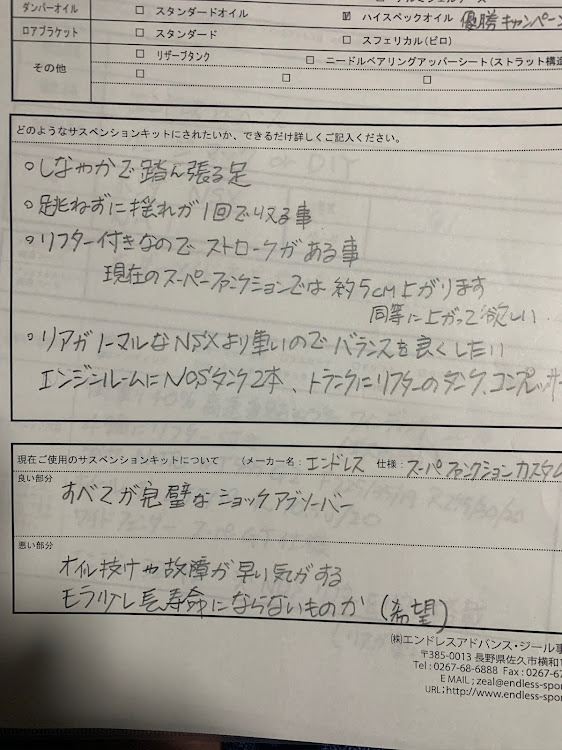 ダンパーオイル □ スタンダードオイル ☑ ハイスペックオイル 優勝キャンペーン
ロアブラケット □ スタンダード □ スフェリカル(ピロ)
その他 □ リザーブタンク □ ニードルベアリングアッパーシート(ストラット構造
□ □ □
どのようなサスペンションキットにされたいか、できるだけ詳しくご記入ください。
○しなやかで踏ん張る足
○跳ねずに揺れが1回で収る事
○リフター付きなのでストロークがある事
現在のスーパーファンクションでは約5cm上がります
同等に上がって欲しい.
○リアがノーマルなNSXより重いのでバランスを良くしたい
エンジンルームにNOSタンク2本、トランクにリフターのタンク、コンプレッサー
現在ご使用のサスペンションキットについて (メーカー名:エンドレス 仕様:スーパーファンクションカスタム
良い部分
すべてが完璧なショックアブソーバー
悪い部分
オイル抜けや故障が早い気がする
もう少し長寿命にならないものか(希望)
㈱エンドレスアドバンス・ジール事
〒385-0013 長野県佐久市横和1
Tel:0267-68-6888 Fax:0267-6
E MAIL;zeal@endless-spo
URL;http://www.endless-spor